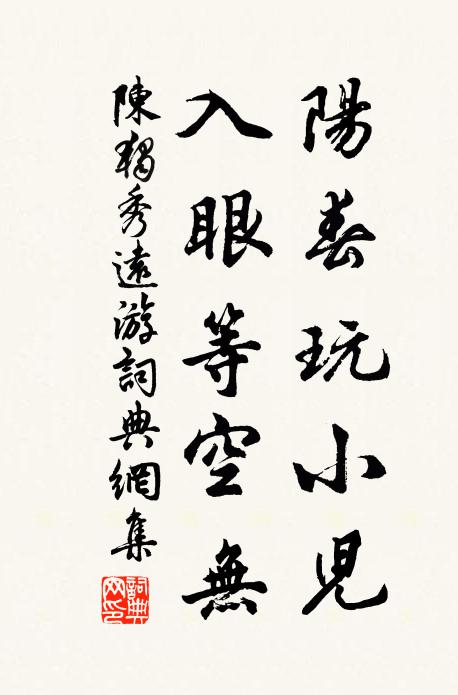 陽春玩小兒
入眼等空無
陳獨秀遠游詞典網集
詞典網印